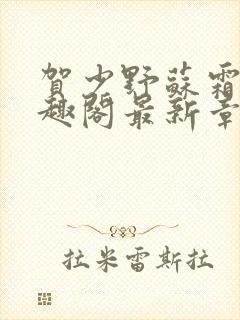 賀少野蘇霜
趣閣最新章
拉米雷斯拉